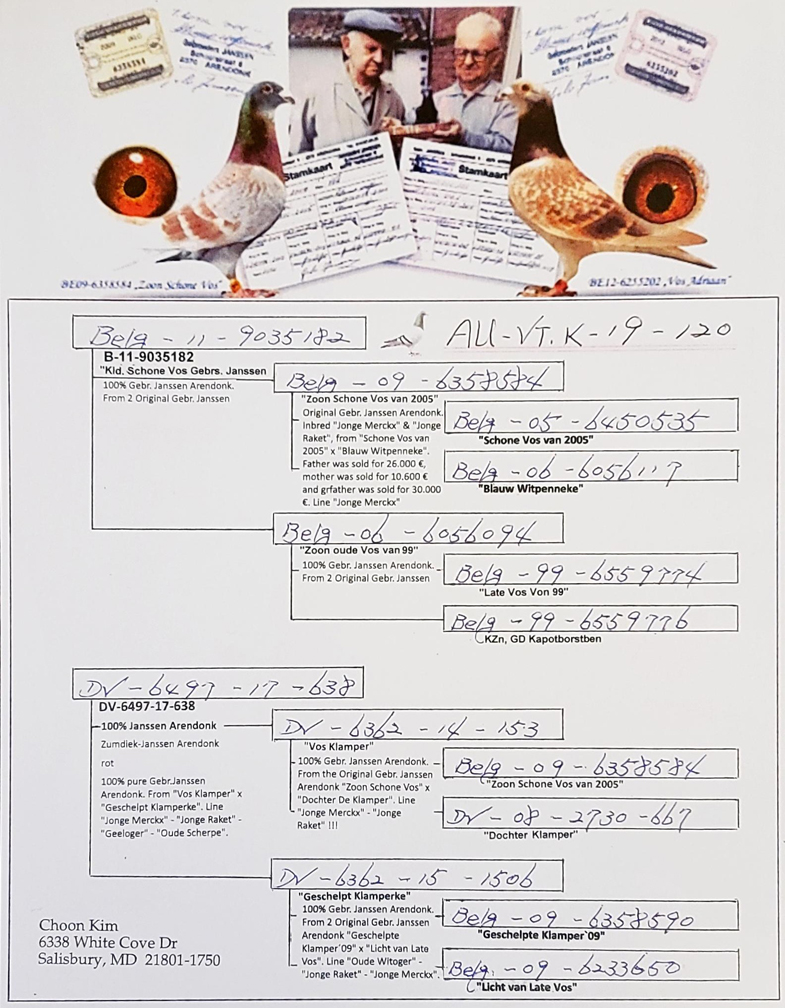 2009 BELG
6358584
Gebroeders JANSSEN
Schoolstraat 6
2370 ARENDONK
Gebroeders JANSSEN
Schoolstraat 6
2370 ARENDONK
2012 BELG
6255202
Stamkaart
Stamkaart
BE09-6358584 „Zoon Schone Vos"
BE12-6255202 „Vos Adriaan"
Belg - 11 - 9035182
AU-VT.K-19-120
B-11-9035182
"Kld. Schone Vos Gebrs. Janssen
100% Gebr. Janssen Arendonk.
From 2 Original Gebr. Janssen
Belg - 09 - 6358584
"Zoon Schone Vos van 2005"
Original Gebr. Janssen Arendonk.
Inbred "Jonge Merckx" & "Jonge
Raket", from "Schone Vos van
2005" x "Blauw Witpenneke".
Father was sold for 26.000 €,
mother was sold for 10.600 €
and grfather was sold for 30.000
€. Line "Jonge Merckx"
Belg - 05 - 6450535
"Schone Vos van 2005"
Belg - 06 - 6056117
"Blauw Witpenneke"
Belg - 06 - 6056094
"Zoon oude Vos van 99"
100% Gebr. Janssen Arendonk.
From 2 Original Gebr. Janssen
Belg - 99 - 6559774
"Late Vos Von 99"
Belg - 99 - 6559776
KZn, GD Kapotborstben
DV - 6497 - 17 - 638
DV-6497-17-638
100% Janssen Arendonk
Zumdiek-Janssen Arendonk
rot
100% pure Gebr.Janssen
Arendonk. From "Vos Klamper" x
"Geschelpt Klamperke". Line
"Jonge Merckx" - "Jonge Raket" -
"Geeloger" - "Oude Scherpe".
DV - 6362 - 14 - 153
"Vos Klamper"
100% Gebr. Janssen Arendonk.
From the Original Gebr. Janssen
Arendonk "Zoon Schone Vos" x
"Dochter De Klamper". Line
"Jonge Merckx" - "Jonge
Raket" !!!
Belg - 09 - 6358584
"Zoon Schone Vos van 2005"
DV - 08 - 2730 - 667
"Dochter Klamper"
DV - 6362 - 15 - 1506
"Geschelpt Klamperke"
100% Gebr. Janssen Arendonk.
From 2 Original Gebr. Janssen
Arendonk "Geschelpte
Klamper`09" x "Licht van Late
Vos". Line "Oude Witoger" -
"Jonge Raket" - "Jonge Merckx".
Belg - 09 - 6358590
"Geschelpte Klamper`09"
Belg. - 09 - 6233650
"Licht van Late Vos"
Choon Kim
6338 White Cove Dr
Salisbury, MD 21801-1750